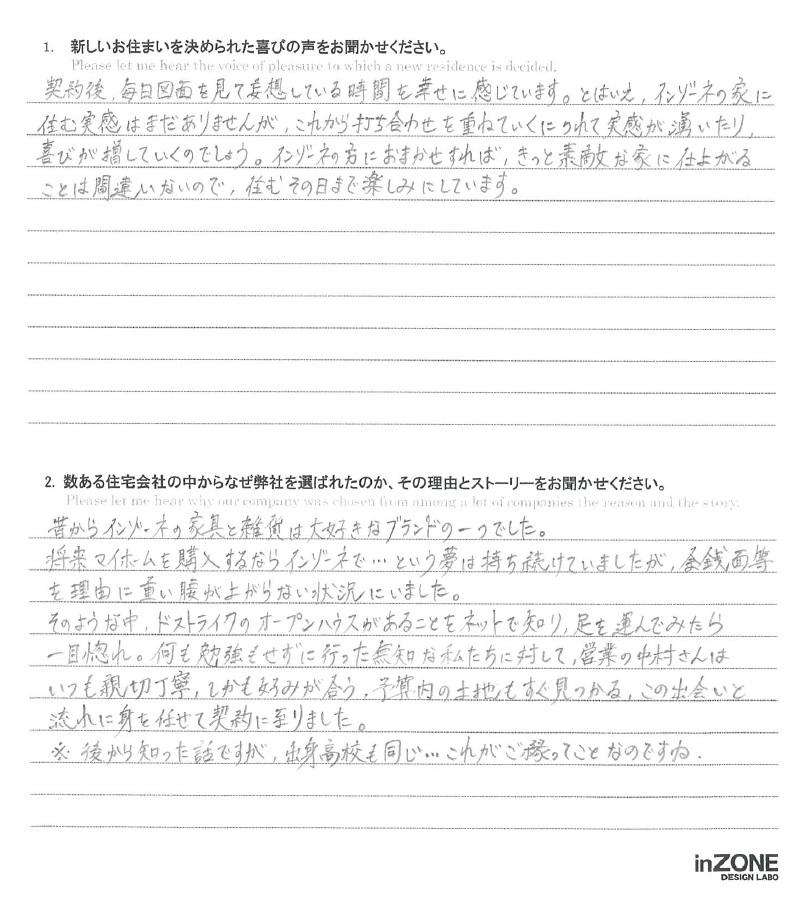 1. 新しいお住まいを決められた喜びの声をお聞かせください。
Please let me hear the voice of pleasure to which a new residence is decided.
契約後、毎日図面を見て妄想している時間を幸せに感じています。とはいえ、インゾーネの家に
住む実感はまだありませんが、これから打ち合わせを重ねていくにつれて実感が湧いたり、
喜びが増していくのでしょう。インゾーネの方におまかせすれば、きっと素敵な家に仕上がる
ことは間違いないので、住むその日まで楽しみにしています。
2. 数ある住宅会社の中からなぜ弊社を選ばれたのか、その理由とストーリーをお聞かせください。
Please let me hear why our company was chosen from among a lot of companies the reason and the story.
昔からインゾーネの家具と雑貨は大好きなブランドの一つでした。
将来マイホームを購入するならインゾーネで…という夢は持ち続けていましたが、金銭面等
を理由に重い腰が上がらない状況にいました。
そのような中、ドストライクのオープンハウスがあることをネットで知り、足を運んでみたら
一目惚れ。何も勉強もせずに行った無知な私たちに対して、営業の中村さんは
いつも親切丁寧、しかも好みが合う、予算内の土地もすぐ見つかる、この出会いと
流れに身を任せて契約に至りました。
※後から知った話ですが、出身高校も同じ…これがご縁ってことなのですね.
inZONE
DESIGN LABO